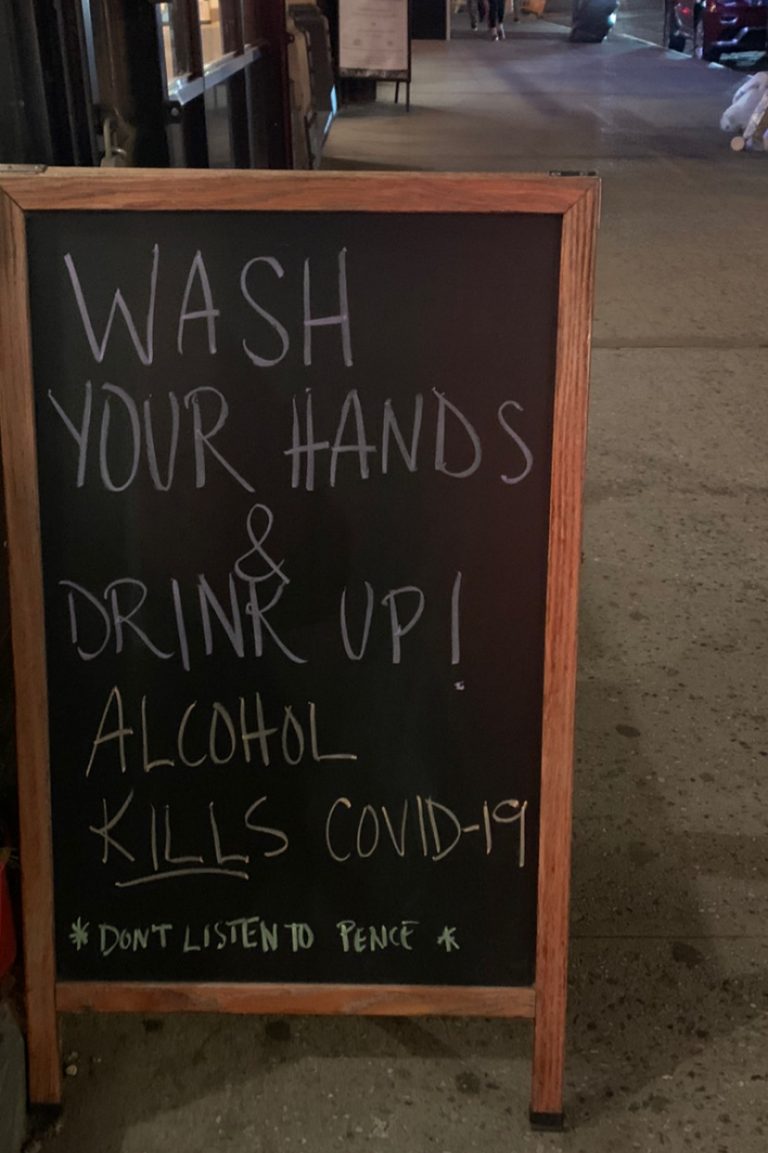 WASH
YOUR HANDS
&
DRINK UP!
ALCOHOL
KILLS COVID-19
*DON'T LISTEN TO PENCE*